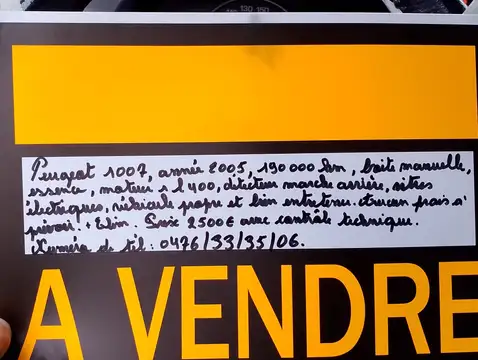 130 150
Peugeot 1007, année 2005, 190 000 km, boite manuelle,
essence, moteur 1 l 400, détecteur marche arrière, vitres
électriques, véhicule propre et bien entretenu. Aucun frais à
prévoir. + Clim. Prix 2500 € avec contrôle technique.
Numéro de tel : 0476/33/35/06.
A VENDRE